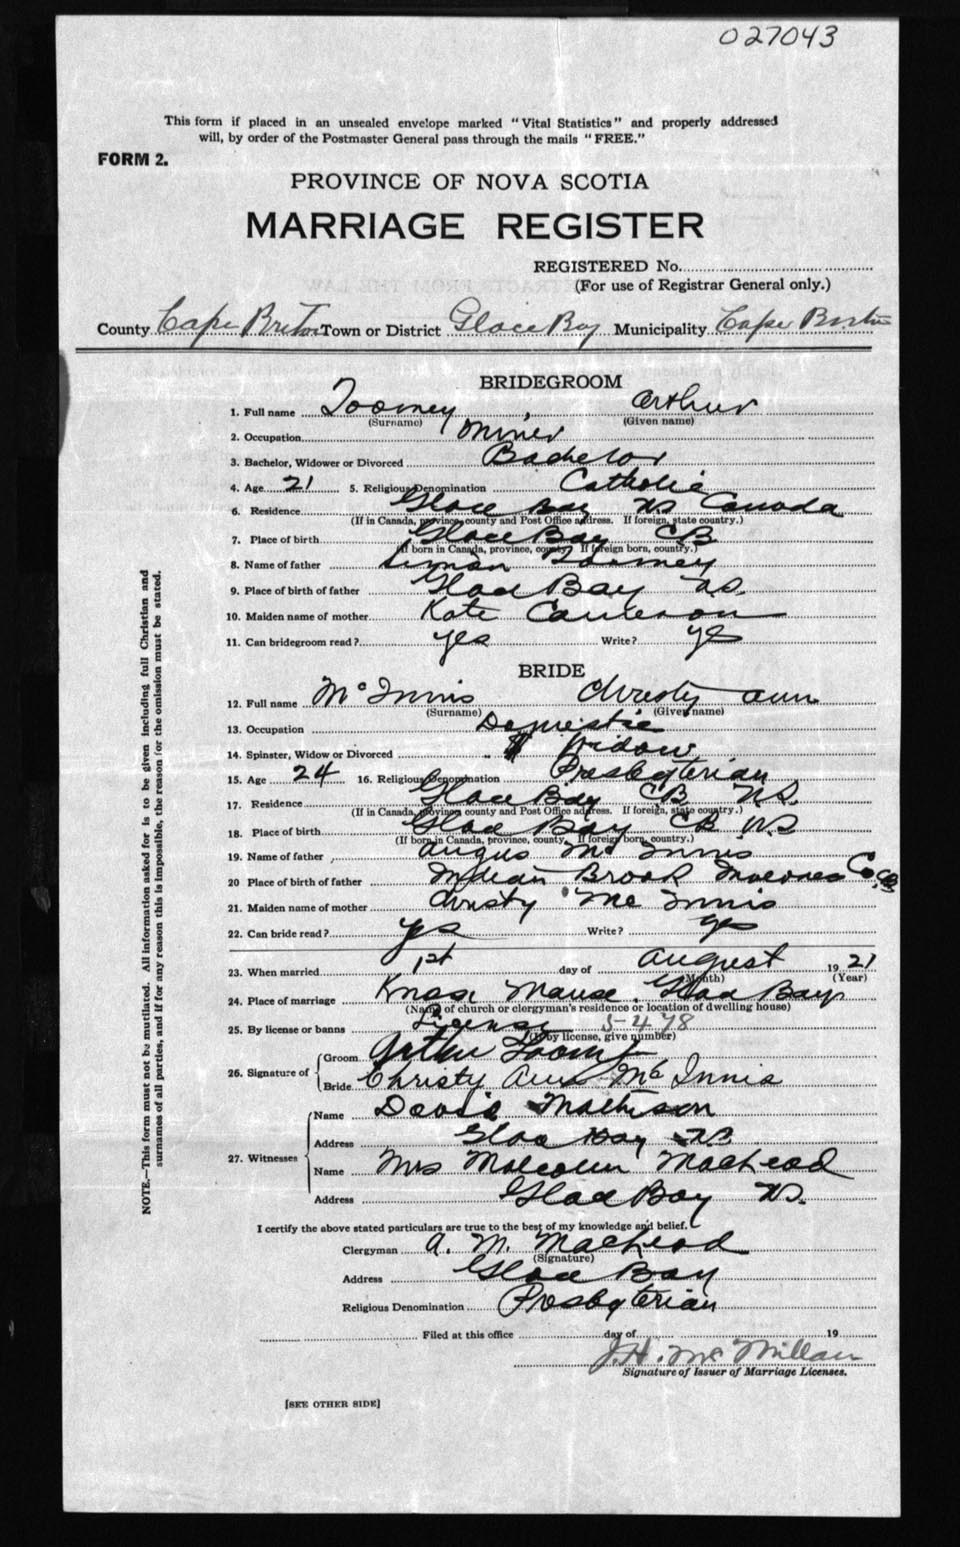 027043
This form if placed in an unsealed envelope marked "Vital Statistics" and properly addressed
will, by order of the Postmaster General pass through the mails "FREE."
FORM 2.
PROVINCE OF NOVA SCOTIA
MARRIAGE REGISTER
REGISTERED No.
(For use of Registrar General only.)
County Cape Breton Town or District Glace Bay Municipality Cape Breton
BRIDEGROOM
1. Full name Toomey, Arthur
(Surname) (Given name)
2. Occupation Miner
3. Bachelor, Widower or Divorced Bachelor
4. Age 21 5. Religious Denomination Catholic
6. Residence Glace Bay NS Canada
(If in Canada, province, county and Post Office address. If foreign, state country.)
7. Place of birth Glace Bay CB
(If born in Canada, province, county. If foreign born, country.)
8. Name of father Toomey
9. Place of birth of father Glace Bay NS.
10. Maiden name of mother Kate Cameron
11. Can bridegroom read? yes Write? yes
BRIDE
12. Full name McInnis Christy Ann
(Surname) (Given name)
13. Occupation Domestic
14. Spinster, Widow or Divorced Widow
15. Age 24 16. Religious Denomination Presbyterian
17. Residence Glace Bay CB NS.
(If in Canada, province county and Post Office address. If foreign, state country.)
18. Place of birth Glace Bay CB NS
(If born in Canada, province, county, If foreign born, country.)
19. Name of father Angus McInnis
20 Place of birth of father Brook Co, CB
21. Maiden name of mother Christy McInnis
22. Can bride read? yes Write? yes
23. When married 1st day of August 1921
(Month) (Year)
24. Place of marriage Knox Manse. Glace Bay
(Name of church or clergyman's residence or location of dwelling house)
25. By license or banns License S-478
(If by license, give number)
26. Signature of Groom Arthur Toomey
Bride Christy Ann McInnis
27. Witnesses Name Mathison
Address Glace Bay NS
Name Mrs Malcolm MacLeod
Address Glace Bay NS.
I certify the above stated particulars are true to the best of my knowledge and belief.
Clergyman A. M. MacLeod
(Signature)
Address Glace Bay
Religious Denomination Presbyterian
Filed at this office day of 19
J.H. McMillan
Signature of Issuer of Marriage Licenses.
[SEE OTHER SIDE]
NOTE.—This form must not be mutilated. All information asked for is to be given including full Christian and
surnames of all parties, and if for any reason this is impossible, the reason for the omission must be stated.